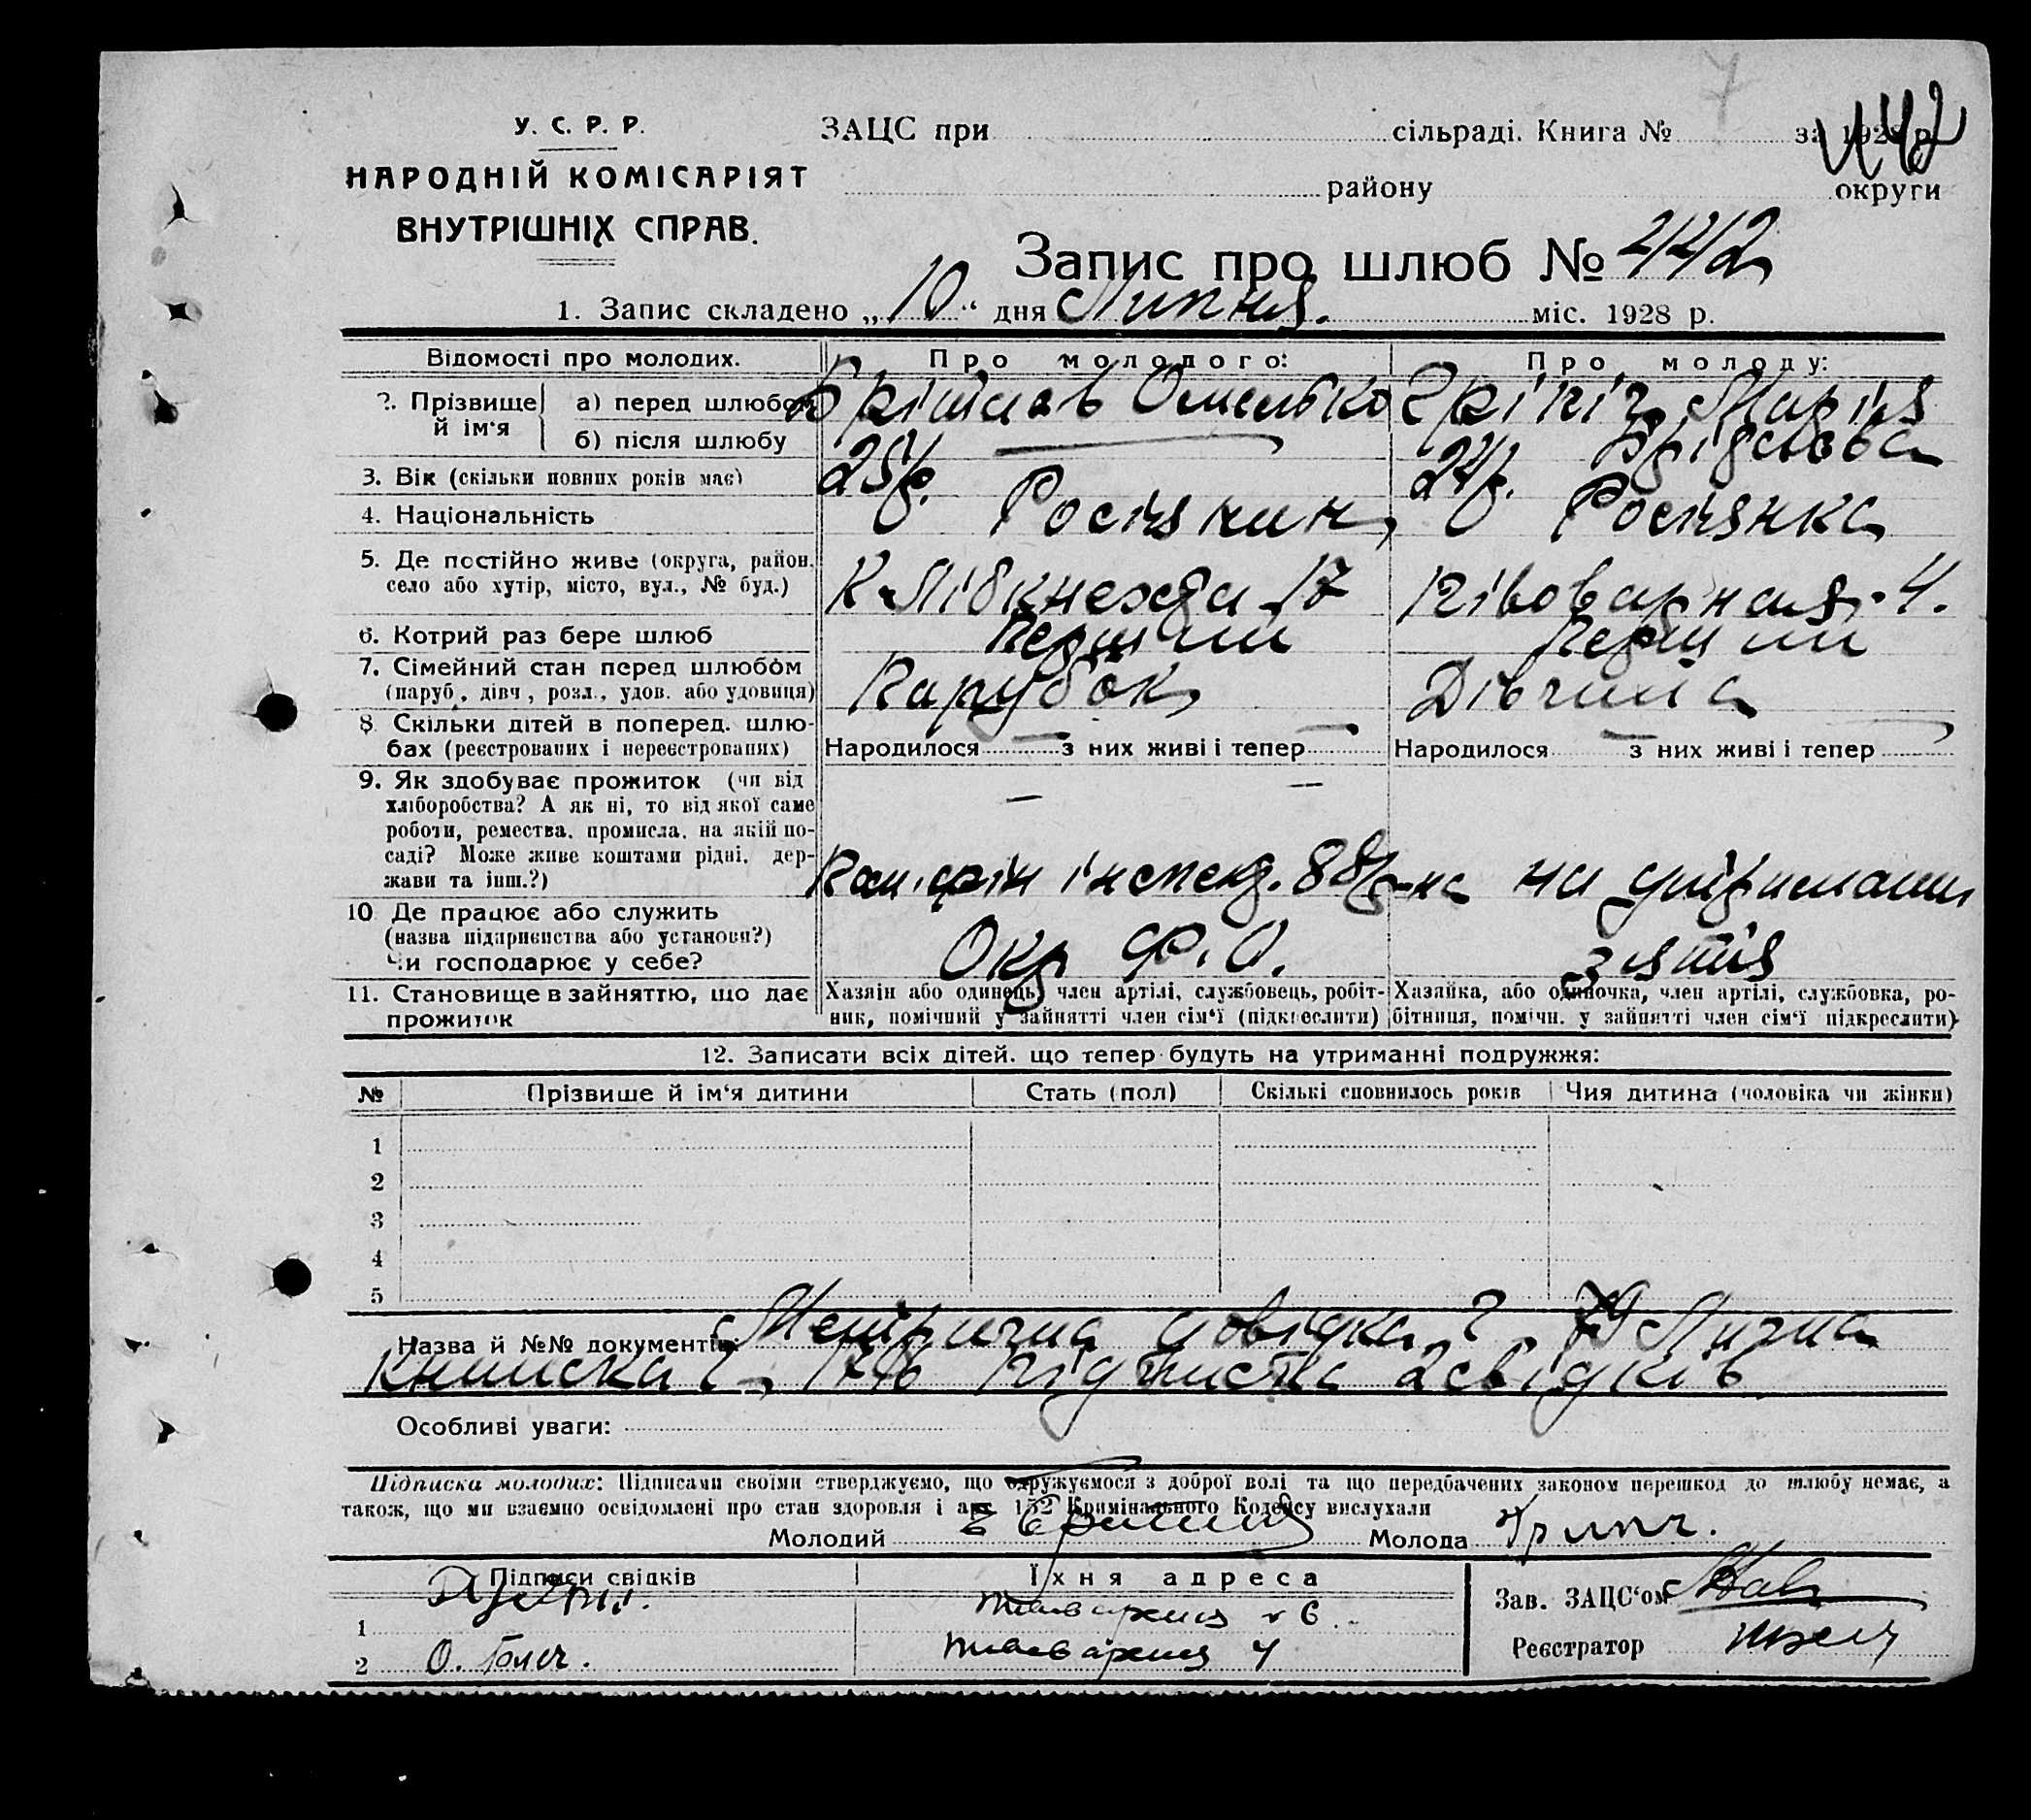 442
У. С. Р. Р.
НАРОДНІЙ КОМІСАРІЯТ
ВНУТРІШНІХ СПРАВ.
ЗАЦС при сільраді. Книга № за 1928 р.
району округи
Запис про шлюб № 442
1. Запис складено „10“ дня Липня. міс. 1928 р.
Відомості про молодих. Про молодого: Про молоду:
2. Прізвище й ім‘я а) перед шлюбом Омелько Марія
б) після шлюбу
3. Вік (скільки повних років має)
4. Національність Росіянин Росіянка
5. Де постійно живе (округа, район,
село або хутір, місто, вул., № буд.) К Лібкнехта 17 Півоварная 4.
6. Котрий раз бере шлюб Перший Перший
7. Сімейний стан перед шлюбом
(паруб., дівч., розл., удов. або удовиця) Парубок Дівчина
8. Скільки дітей в поперед. шлю-
бах (реєстрованих і нереєстрованих) Народилося — з них живі і тепер — Народилося — з них живі і тепер —
9. Як здобуває прожиток (чи від
хліборобства? А як ні, то від якої саме
роботи, ремества, промисла, на якій по-
саді? Може живе коштами рідні, дер-
жави та інш.?) фін інспект. на утриманні
10 Де працює або служить
(назва підприємства або установи?)
Чи господарює у себе? Окр Ф. О. зятя
11. Становище в зайняттю, що дає
прожиток
Хазяїн або одинець, член артілі, службовець, робіт-
ник, помічний у зайнятті член сім‘ї (підкреслити)
Хазяйка, або одиночка, член артілі, службовка, ро-
бітниця, помічн. у зайнятті член сім‘ї підкреслити)
12. Записати всіх дітей, що тепер будуть на утриманні подружжя:
№ Прізвище й ім‘я дитини Стать (пол) Скількі сповнилось років Чия дитина (чоловіка чи жінки)
1
2
3
4
5
Назва й №№ документів: Метрична довідка Лична
книжка підписка 2 свідків
Особливі уваги:
Підписка молодих: Підписами своїми стверджуємо, що одружуємося з доброї волі та що передбачених законом перешкод до шлюбу немає, а
також, що ми взаємно освідомлені про стан здоровля і арт. 152 Кримінального Кодексу вислухали
Молодий Молода
Підписи свідків Їхня адреса
1 6
2 4
Зав. ЗАЦС‘ом
Реєстратор